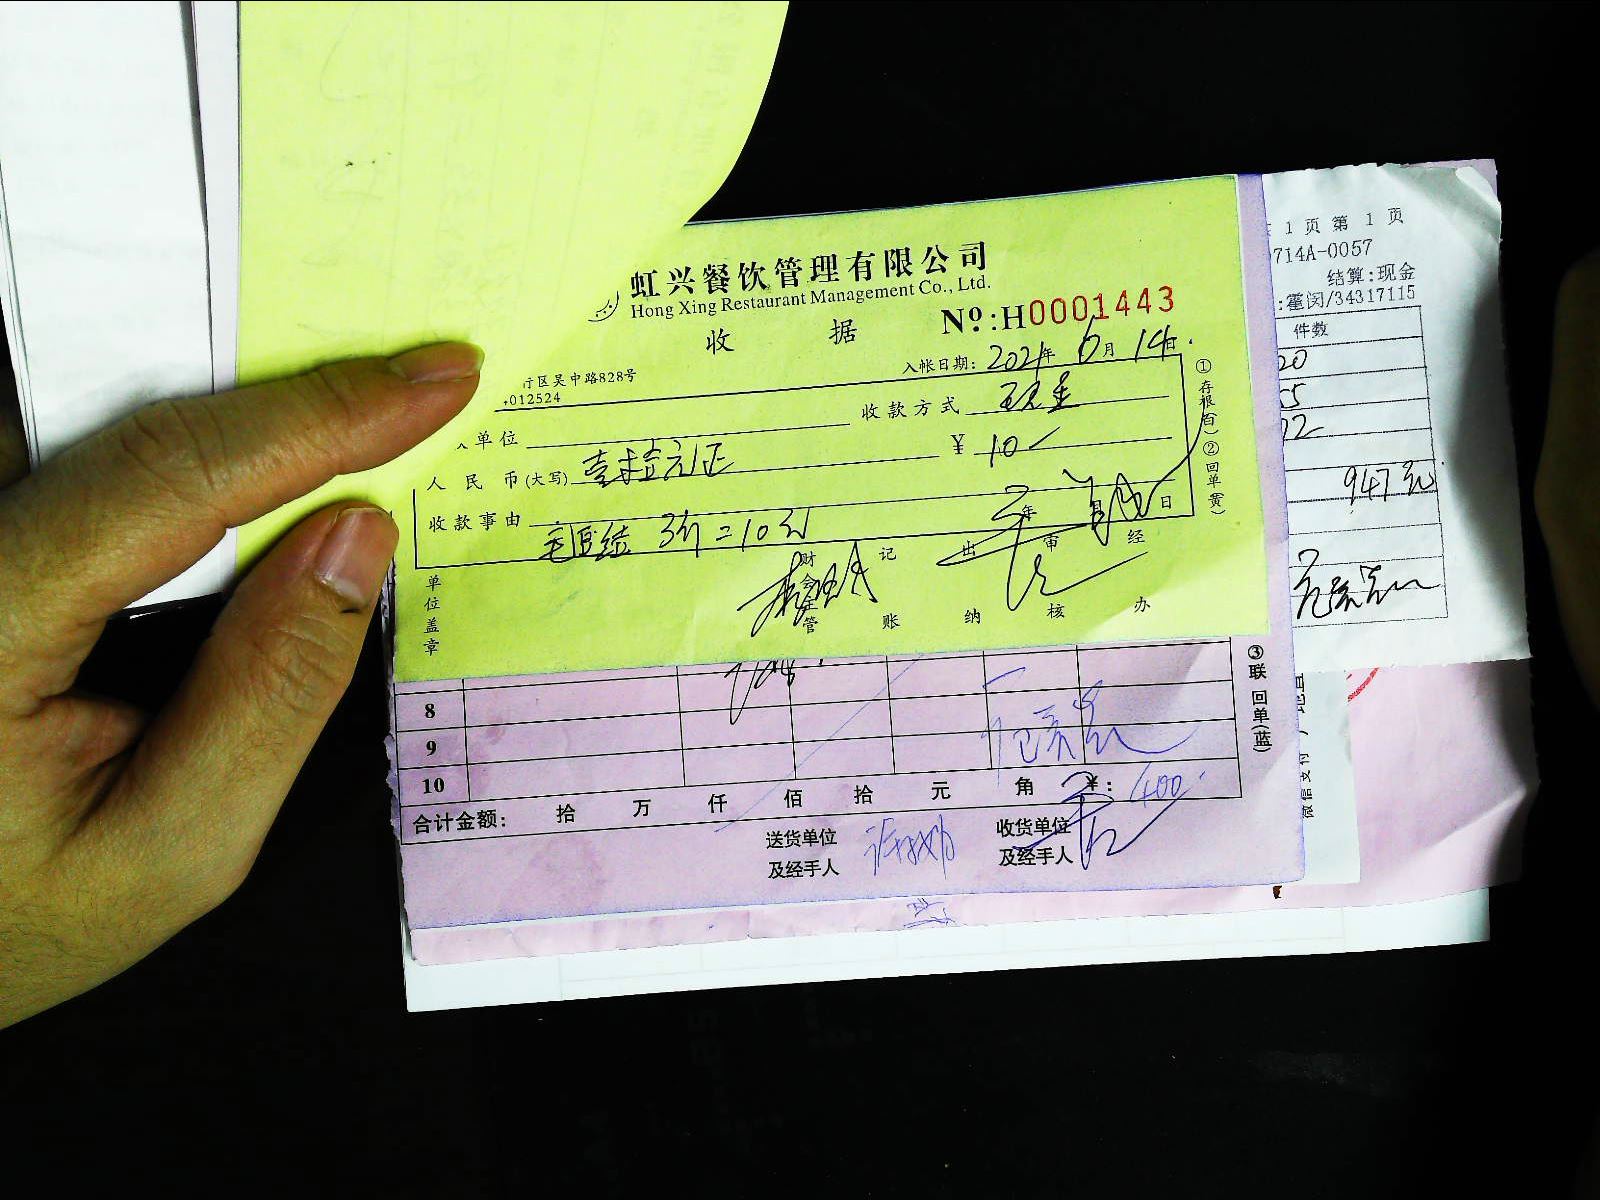 虹兴餐饮管理有限公司
Hong Xing Restaurant Management Co., Ltd.
收 据
Nº:H0001443
行区吴中路828号
012524
入帐日期: 2021年 6月 14日
单位
收款方式 现金
人民币(大写) 壹拾元正
¥ 10
收款事由
3斤=10元
年 月 日
①存根(白) ②回单(黄)
单位盖章
财会主管
记账
出纳
审核
经办
8
9
10
合计金额: 拾 万 仟 佰 拾 元 角 ¥: 400
送货单位
及经手人
收货单位
及经手人
③联 回单(蓝)
1 页 第 1 页
714A-0057
结算:现金
/34317115
件数
20
55
947元
微信支付